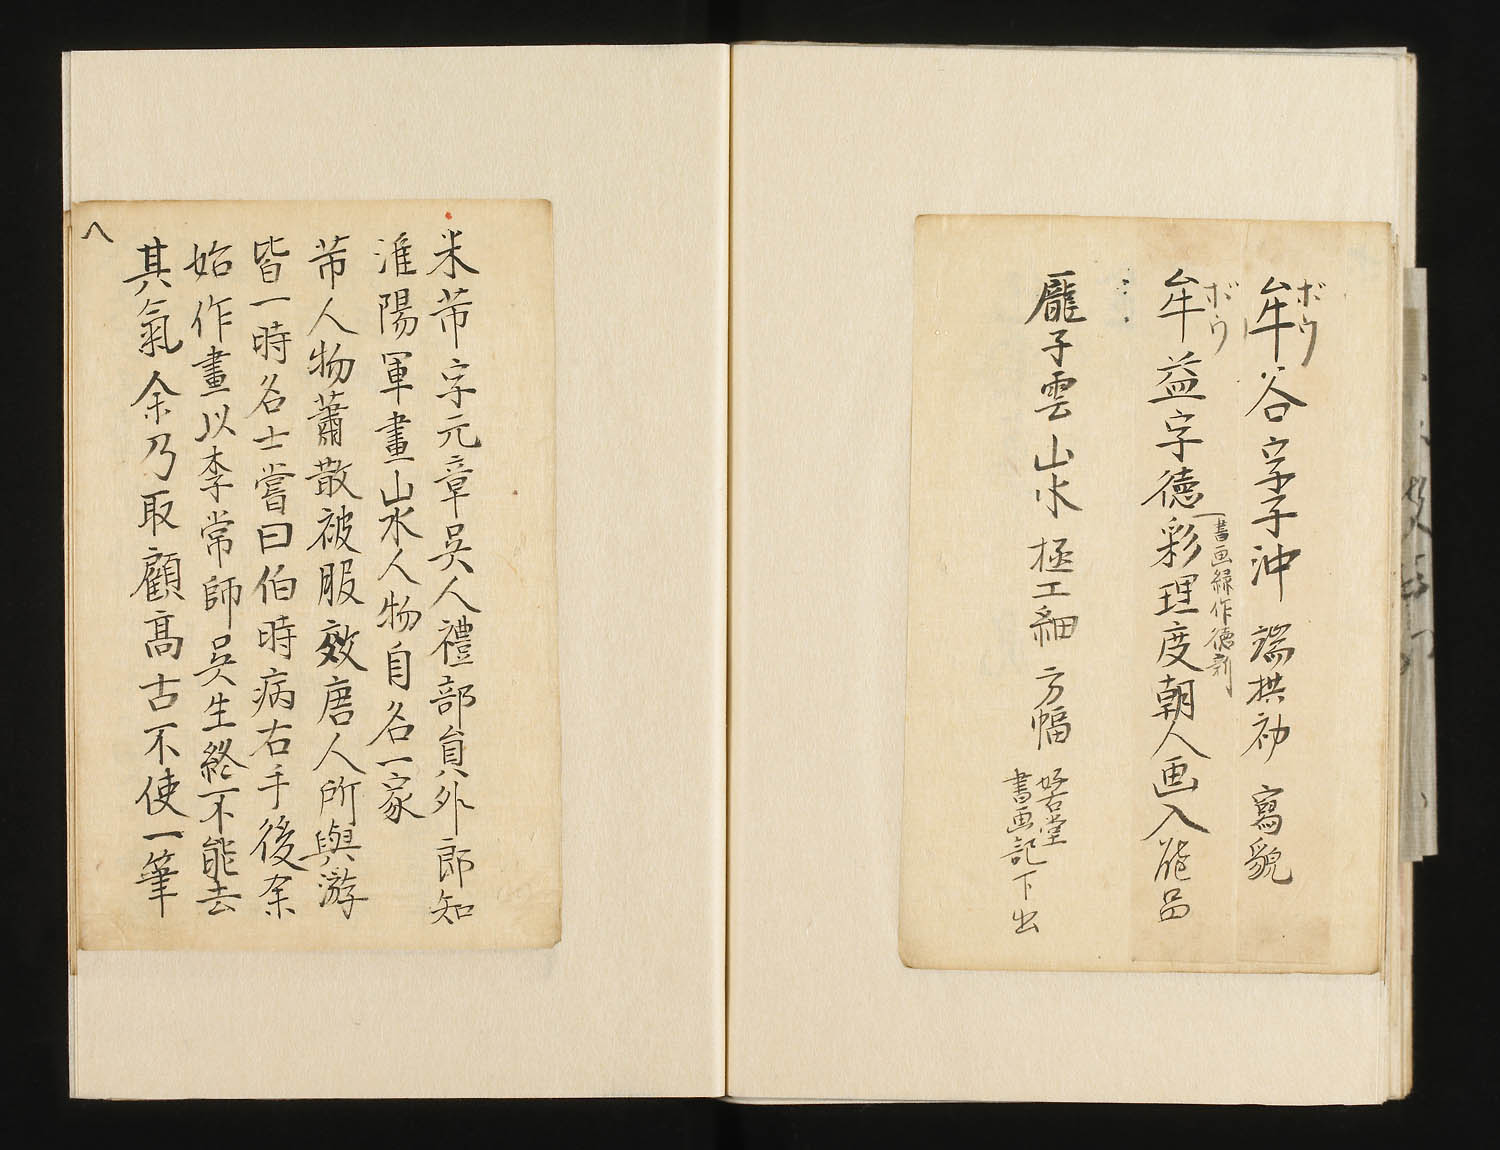 ボウ
牟谷字子沖 端拱初 寫貌
ボウ
牟益字德彩理度朝人画入能品
書画録作德新
龐子雲 山水 極工細 方幅 好古堂
書画記下出
米芾字元章吳人禮部員外郎知
淮陽軍畫山水人物自名一家
芾人物蕭散被服效唐人所與游
皆一時名士嘗曰伯時病右手後余
始作畫以李常師吳生終不能去
其氣余乃取顧高古不使一筆